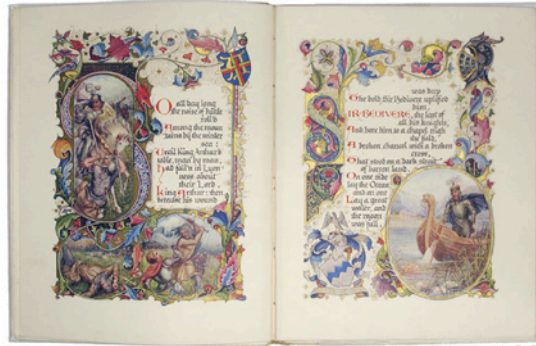 SO all day long
the noise of battle
roll'd
Among the moun
tains by the winter
sea:
Until King Arthur's
table, man by man,
Had fall'n in Lyon
ness about
their Lord,
King Arthur: then
because his wound
was deep
The bold Sir Bedivere uplifted
him,
SIR BEDIVERE, the last of
all his knights,
And bore him to a chapel nigh
the field,
A broken chancel with a broken
cross,
That stood on a dark strait
of barren land.
On one side
lay the Ocean
and on one
Lay a great
water, and
the moon
was full.